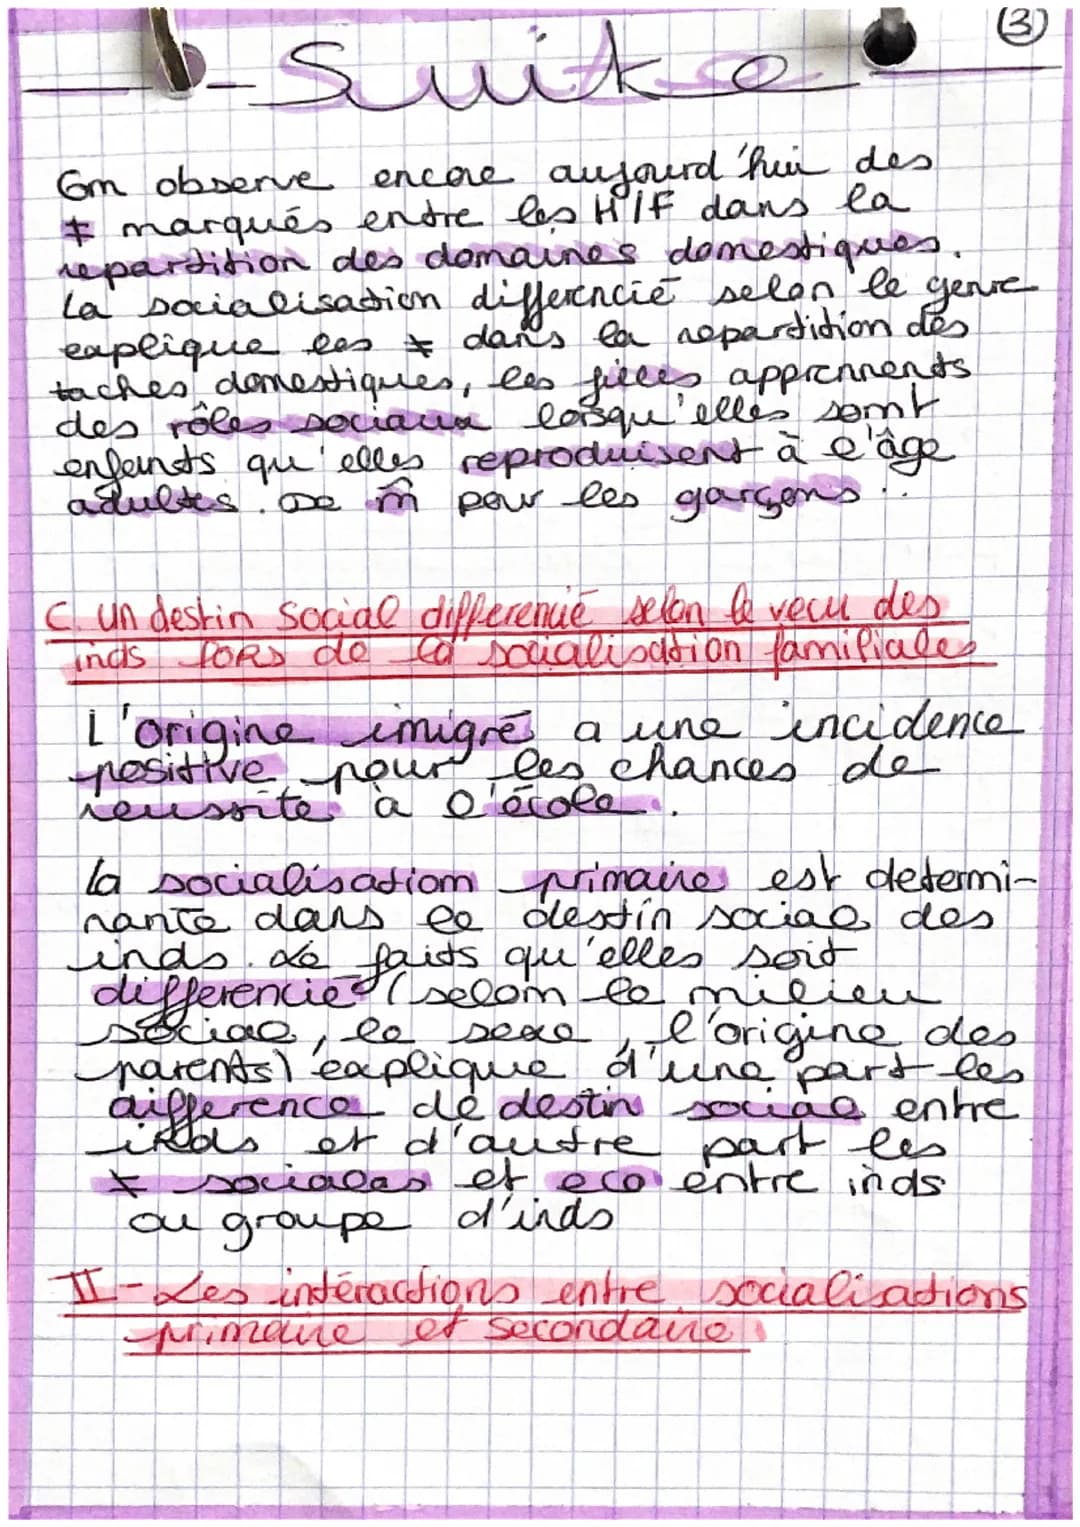 3
Suite
On observe encore aujourd'hui des
≠ marqués entre les H/F dans la
repartition des domaines domestiques.
La socialisation differencié selon le genre
explique les ≠ dans la repartition des
taches domestiques, les filles apprennents
des rôles sociaux lorsqu'elles sont
enfants qu'elles reproduisent à l'âge
adultes. De m̂ pour les garçons..
C. Un destin social differencié selon le vecu des
inds lors de la socialisation familiales
L'origine imigré a une incidence
positive pour les chances de
reussite à l'école.
La socialisation primaire est determi-
nante dans le destin social des
inds. Le faits qu'elles soit
differencié (selon le milieu
social, le sexe, l'origine des
parents) explique d'une part les
difference de destin social entre
inds et d'autre part les
≠ sociales et eco entre inds
ou groupe d'inds
II - Les intéractions entre socialisations
primaire et secondaire